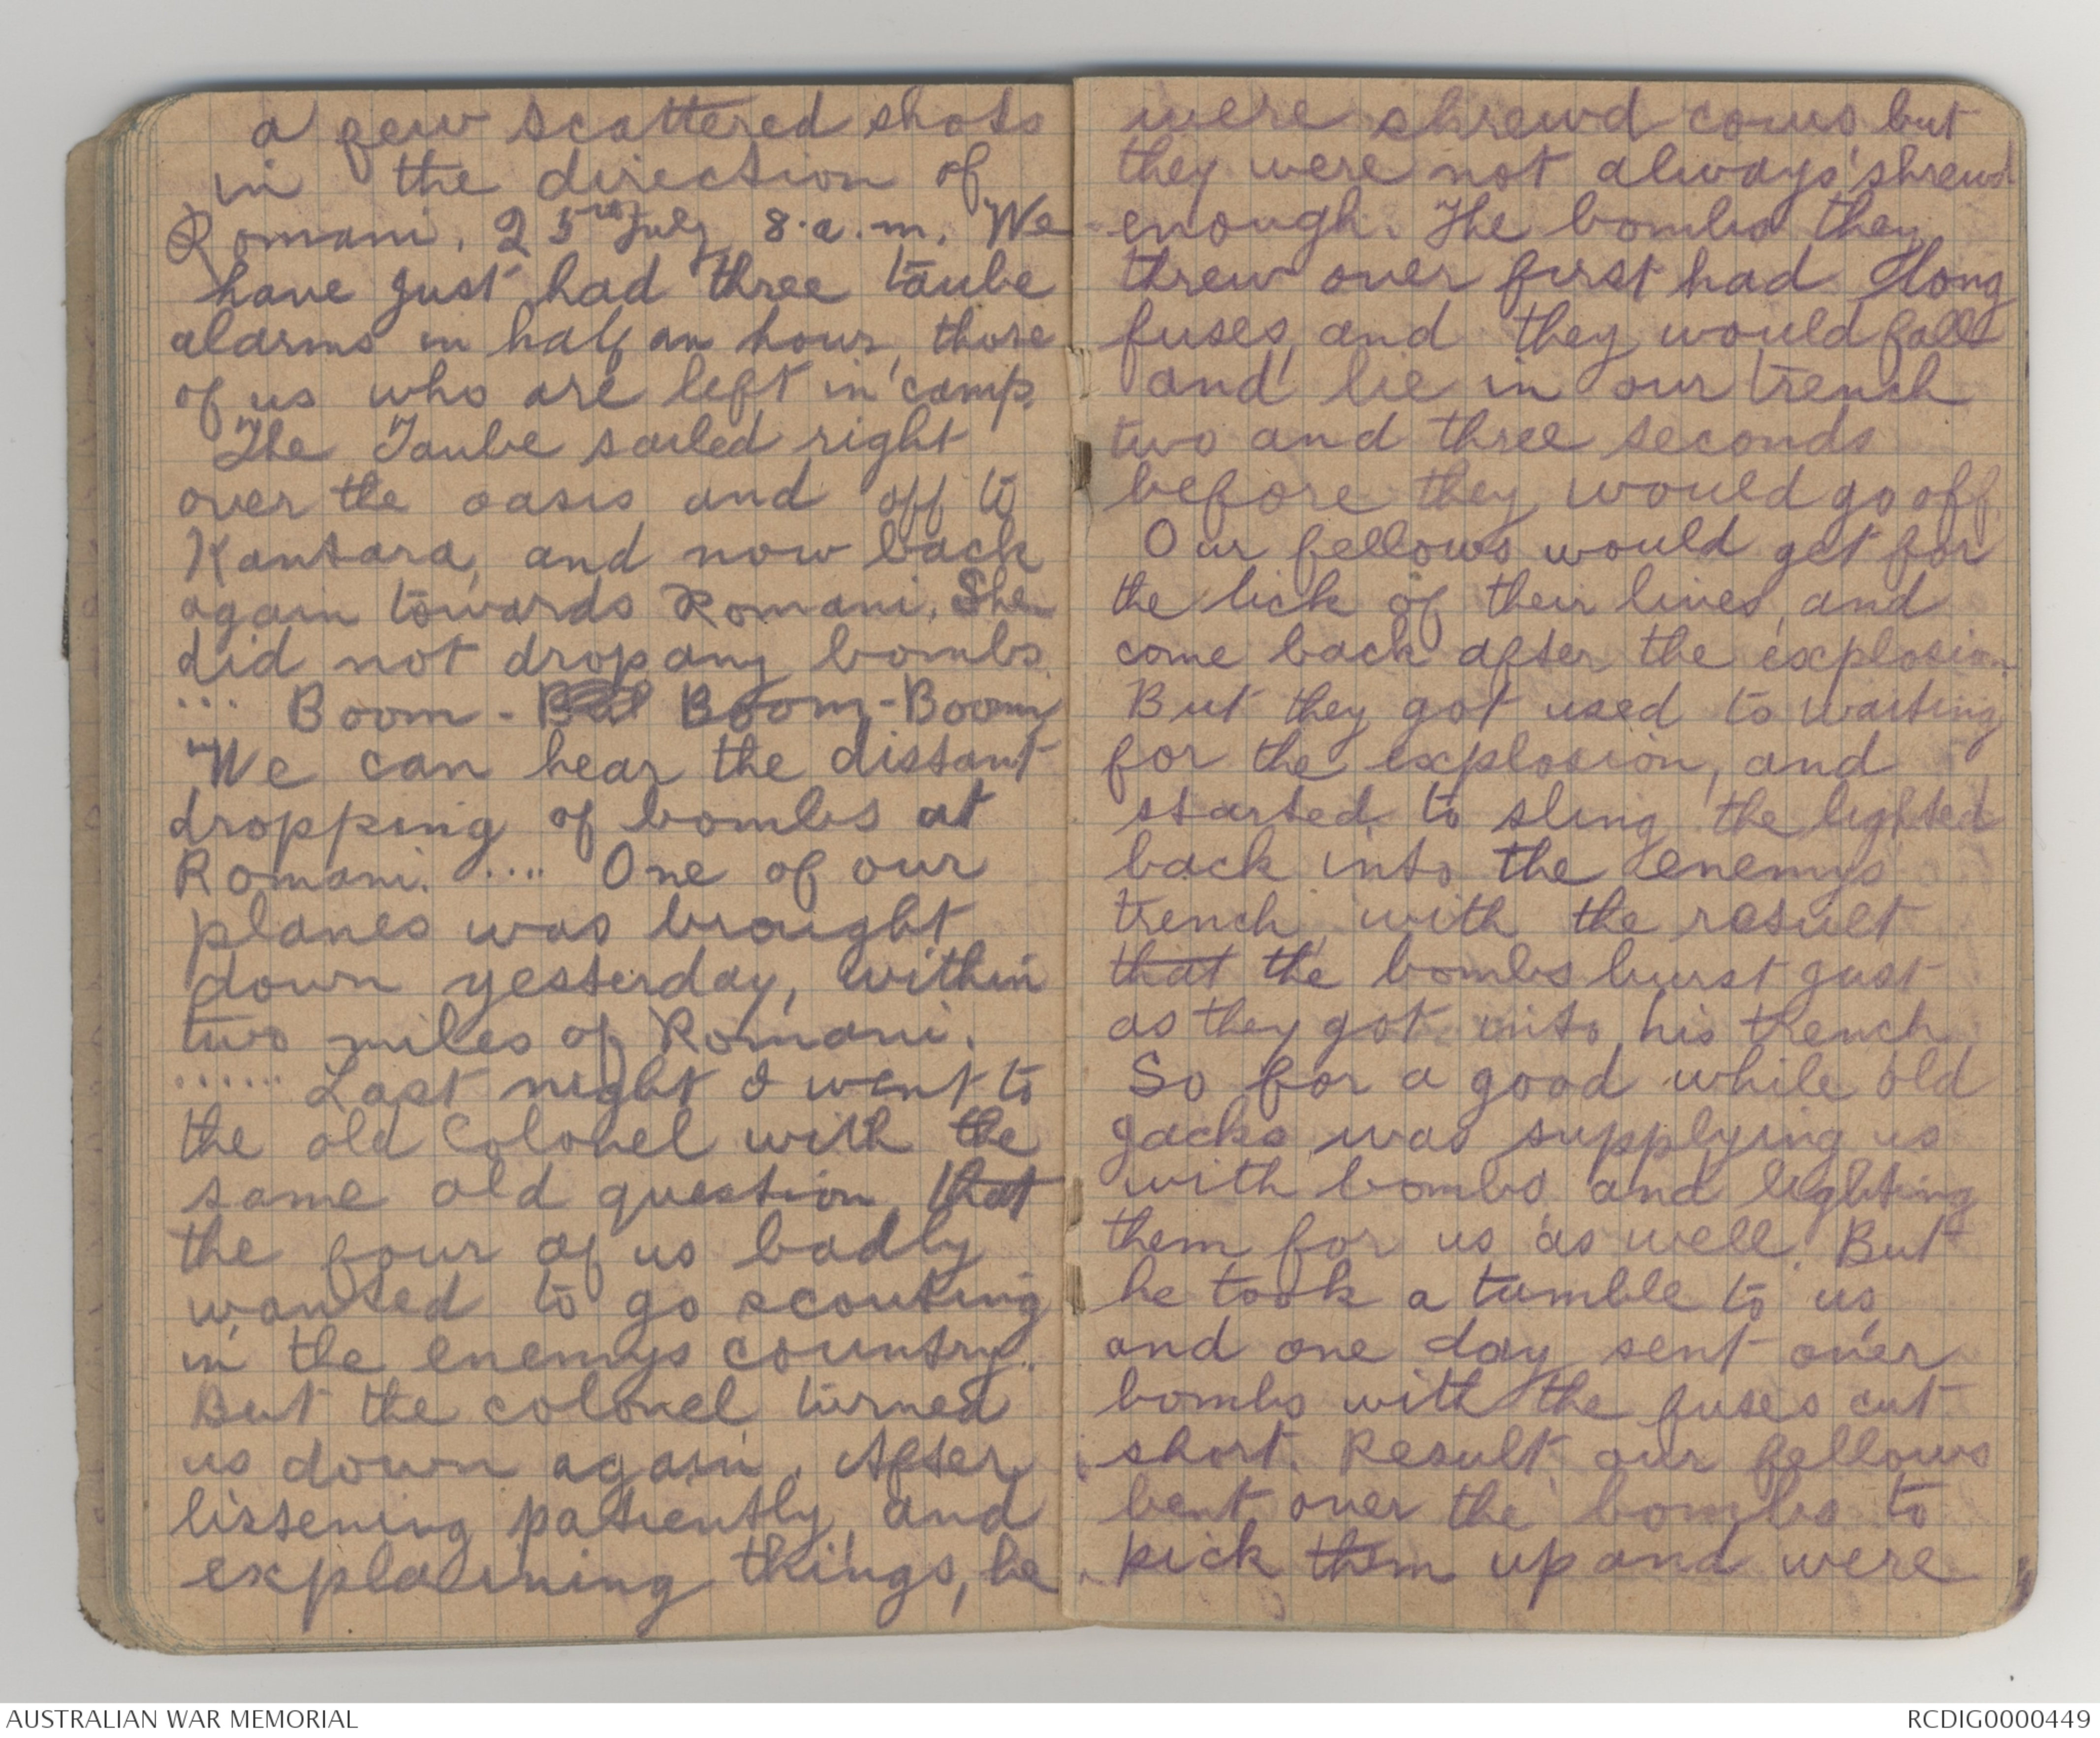 a few scattered shots
in the direction of
Romani. 25th July 8.a.m. We
have just had three taube
alarms in half an hour, those
of us who are left in camp.
The Taube sailed right
over the oasis and off to
Kantara, and now back
again towards Romani. She
did not drop any bombs
... Boom - Boom - Boom
We can hear the distant
dropping of bombs at
Romani. .... One of our
planes was brought
down yesterday, within
two miles of Romani.
...... Last night I went to
the old Colonel with the
same old question, that
the four of us badly
wanted to go scouting
in the enemys country.
But the colonel turned
us down again. After
listening patiently, and
explaining things, he
were shrewd cows but
they were not always shrewd
enough. The bombs they
threw over first had long
fuses, and they would fall
and lie in our trench
two and three seconds
before they would go off.
Our fellows would get for
the lick of their lives, and
come back after the explosion.
But they got used to waiting
for the explosion, and
started to sling the lighted
back into the enemys
trench, with the result
that the bombs burst just
as they got into his trench.
So for a good while old
jacks was supplying us
with bombs and lighting
them for us as well. But
he took a tumble to us
and one day sent over
bombs with the fuses cut
short. Result, our fellows
bent over the bombs to
pick them up and were
AUSTRALIAN WAR MEMORIAL
RCDIG0000449